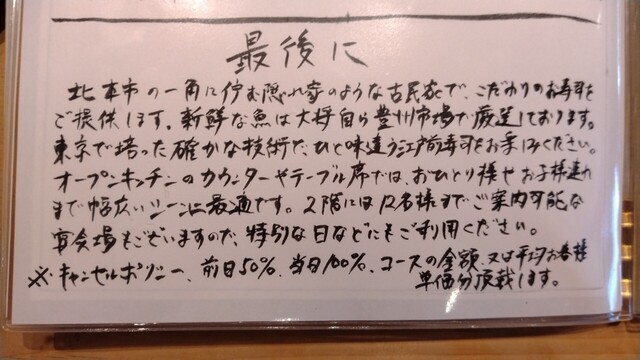 最後に
北本市の一角に佇む隠れ家のような古民家で、こだわりのお寿司を
ご提供します。新鮮な魚は大将自ら豊州市場で厳選しております。
東京で培った確かな技術で、ひと味違う江戸前寿司をお楽しみください。
オープンキッチンのカウンターやテーブル席では、おひとり様やお子様連れ
まで幅広いシーンに最適です。2階には12名様までご案内可能な
宴会場もございますので、特別な日などにもご利用ください。
※キャンセルポリシー、前日50%、当日100%、コースの金額、又は平均お客様
単価分頂戴します。